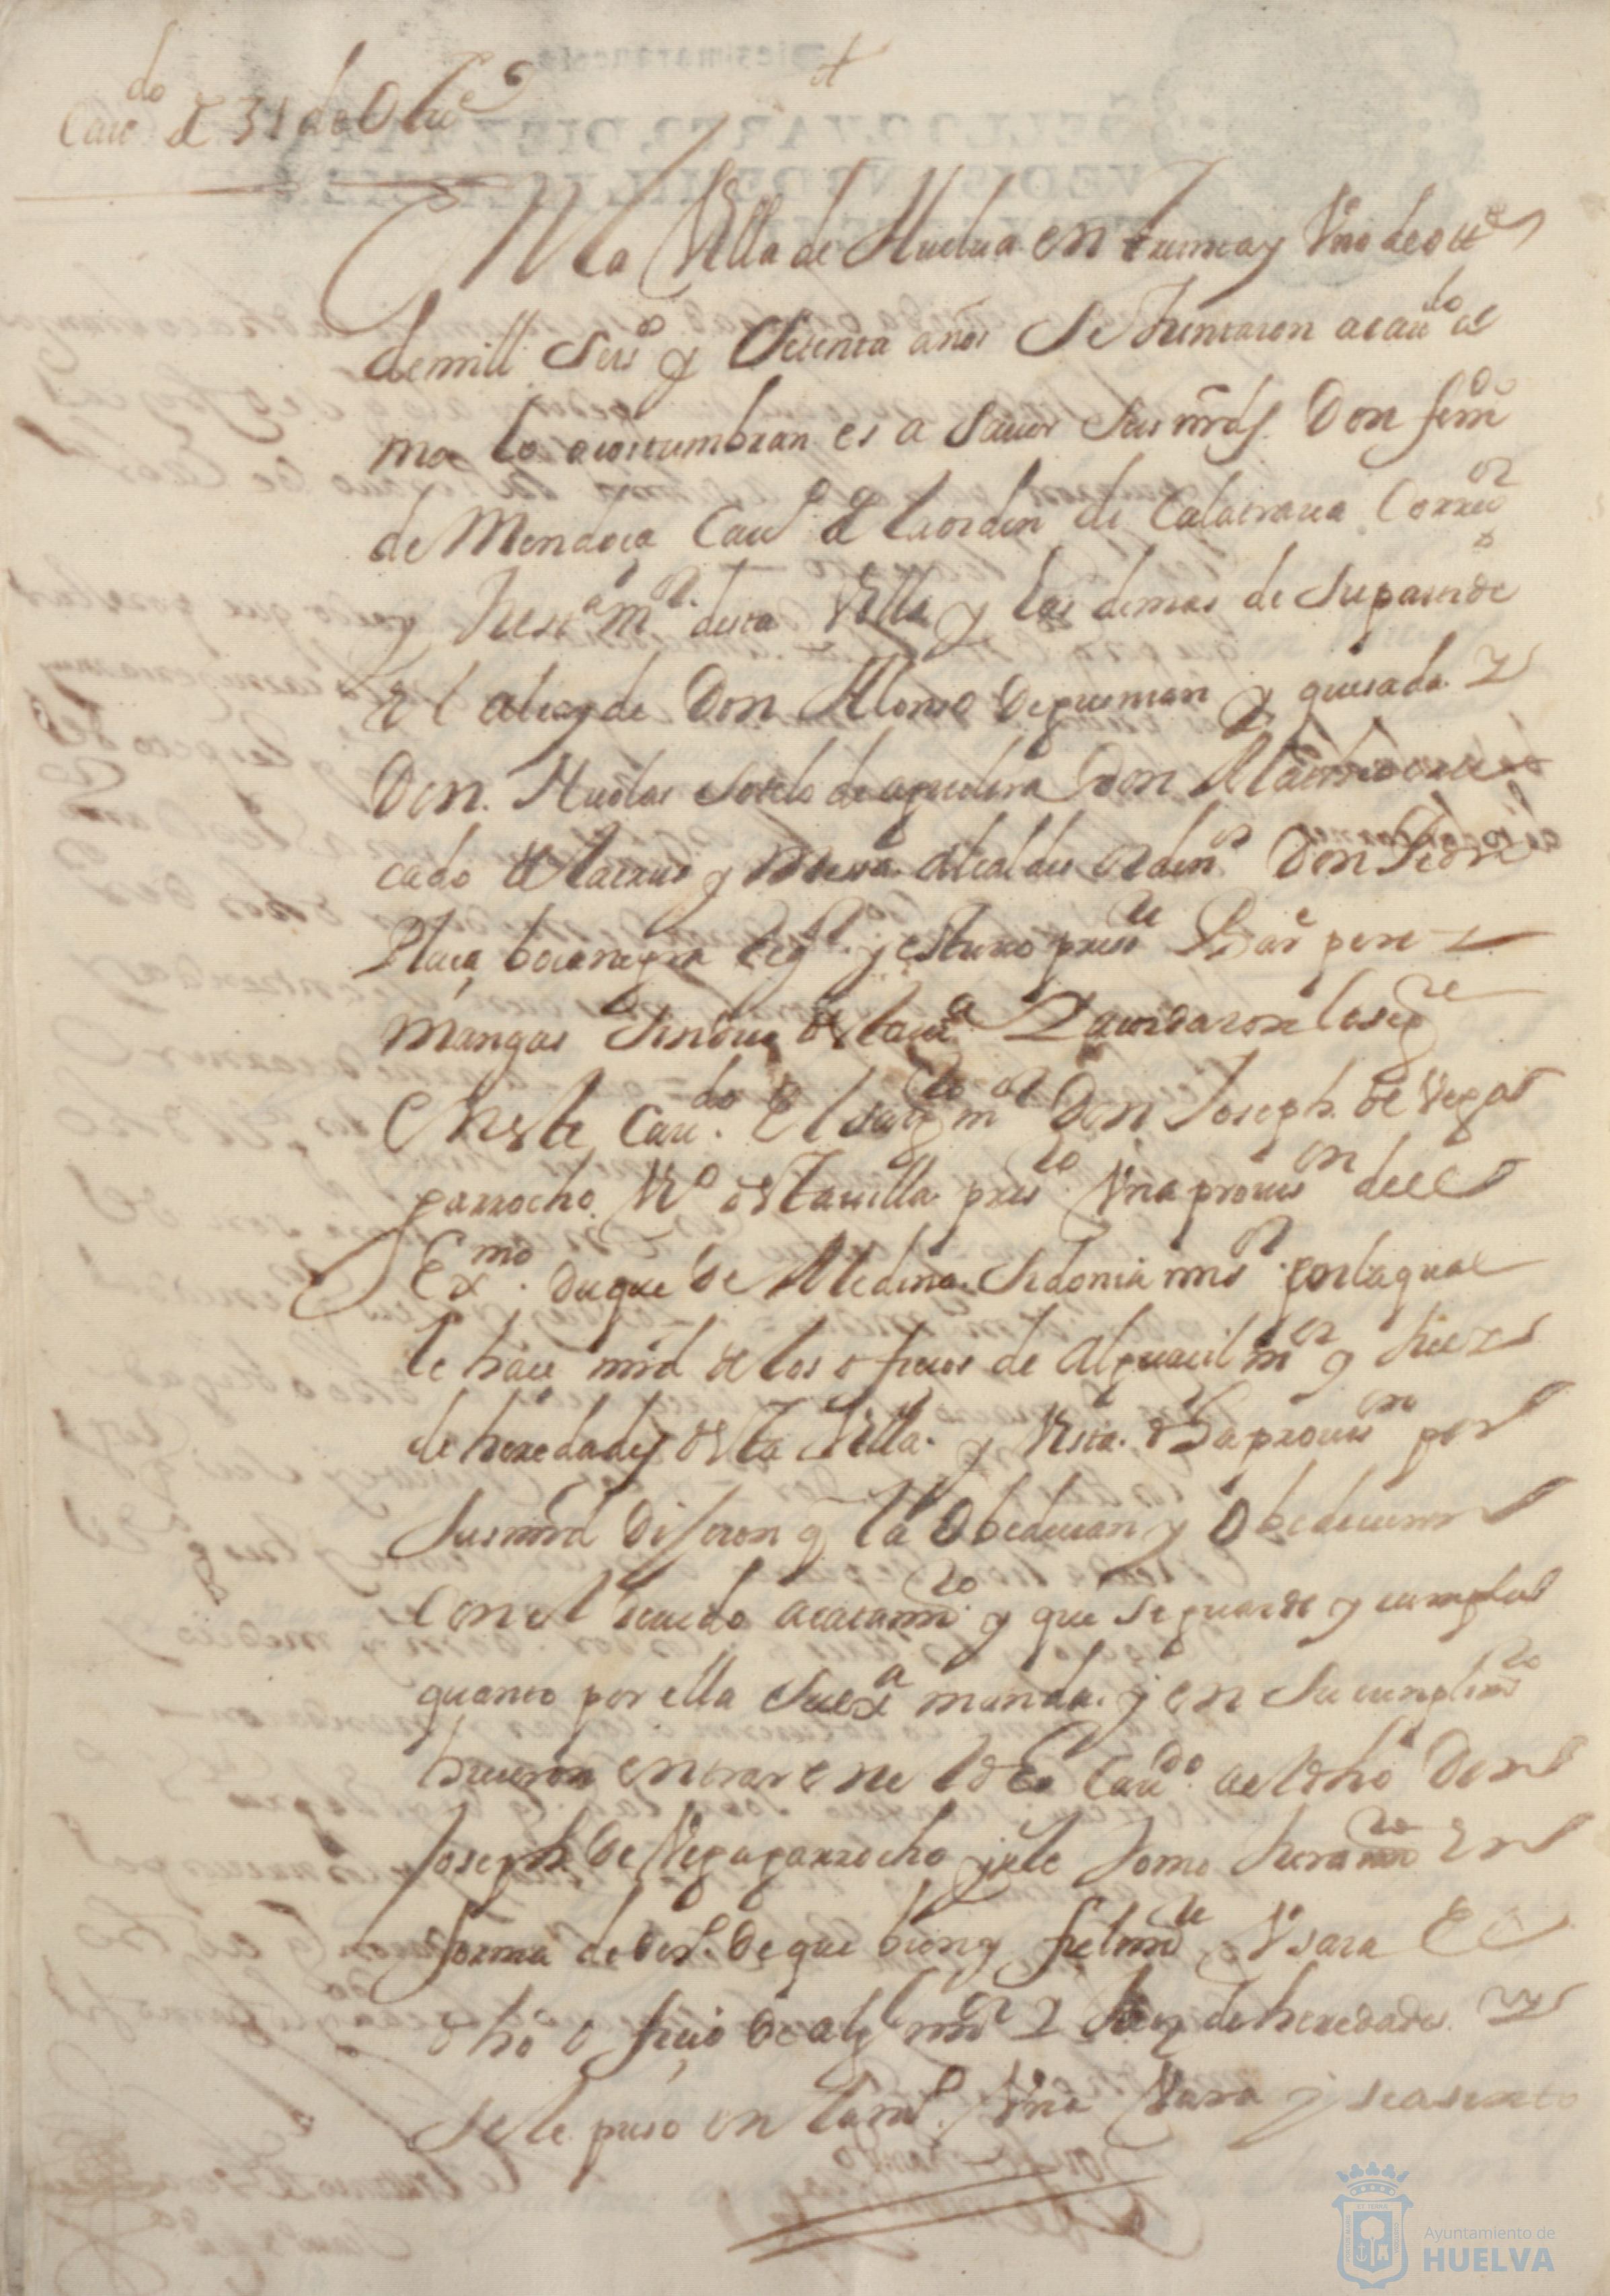 Caudo de 31 de Otue
En la Villa de Huelua en treinta y Uno de otte
de mill seiso y setenta años se Juntaron a caudo co
mo lo acostumbran es a sauer sus mrds Don ferndo
de Mendoça Cauo de la orden de Calatraua Corror
y Justa mor desta Villa y los demas de su parte de
El alcayde Don Alonso de gusman y quesada y
Don Nicolas sotelo de aguilera Don
cado alcaldes ordinos Don
Plaça bocanegra regor y estuuo preste Bare peres
Mangas sindico desta Ua y acordaron lo sigte
En este Caudo El sargto mor Don Joseph de Vega
garrocho Vo desta uilla presto Una prouison del
Exmo duque de Medina Sidonia mi sr en la qual
le haçe mrd de los ofiçios de Alguaçil mor y Juez
de heredades desta Villa y Vista dha prouison por
sus mrds Dijeron q la Obedecian y Obedecieron
con el deuido acatamto y que se guarde y cumpla
quanto por ella su exa manda y en su cumplimto
hicieron entrar en el dho Caudo al dho Don
Joseph de Vega garrocho y se le tomo Juramto En
forma de dero de que bien y fielmte Usara El
dho ofiçio de algl mor y Juez de heredades y
se le puso en la ml Una Vara y se asento
Ayuntamiento de
HUELVA